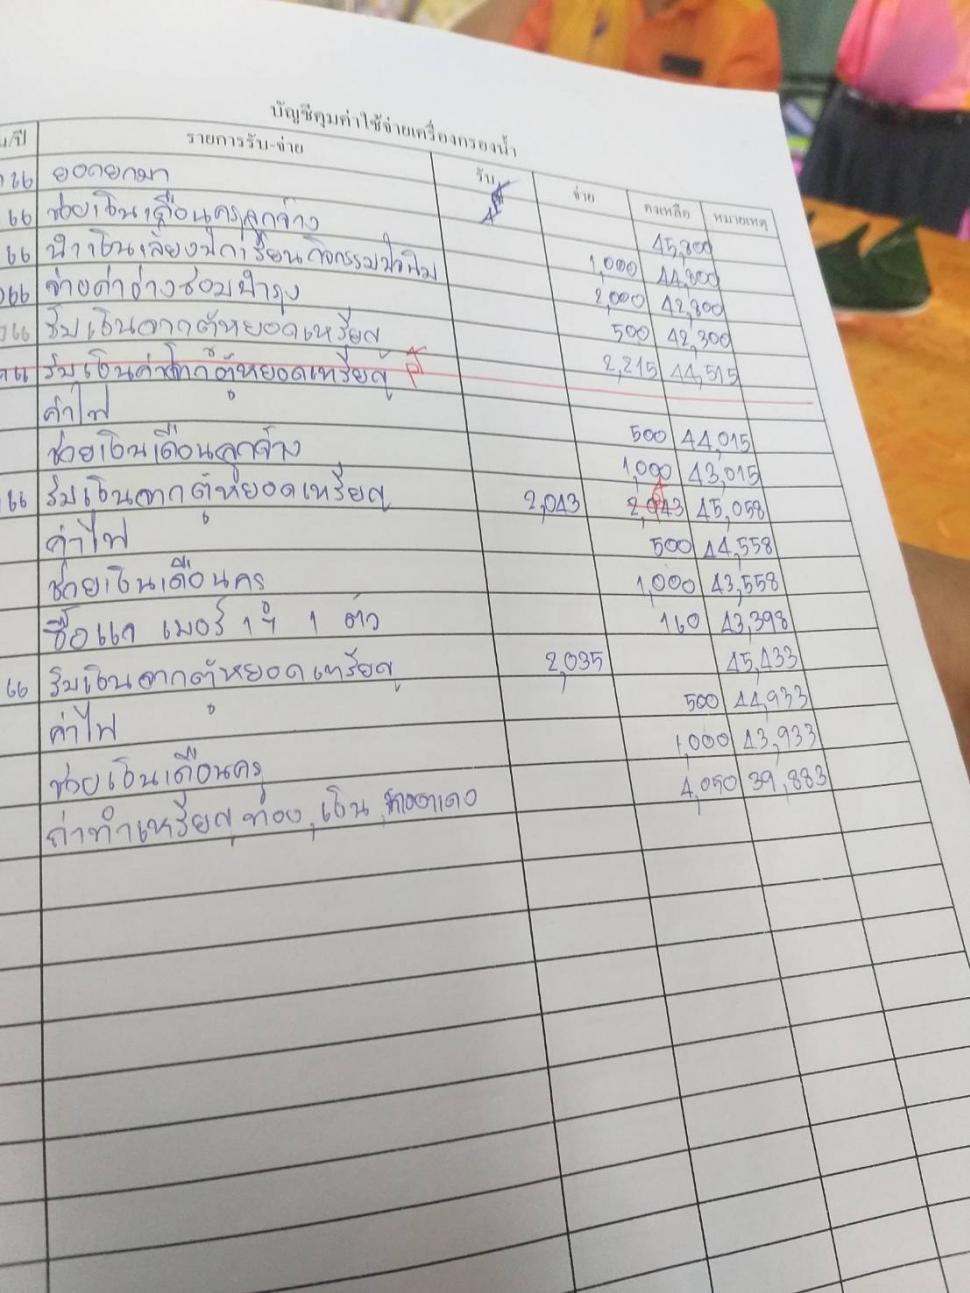 บัญชีคุมค่าใช้จ่ายเครื่องกรองน้ำ
น/ปี รายการรับ-จ่าย รับ จ่าย คงเหลือ หมายเหตุ
66 ยอดยกมา 45,800
66 ช่วยเงินเดือนครูลูกจ้าง 1,000 44,800
66 2,000 42,800
66 จ่ายค่าช่างซ่อมบำรุง 500 42,300
66 รับเงินจากตู้หยอดเหรียญ 2,215 44,515
รับเงินค่า ตู้หยอดเหรียญ
ค่าไฟ 500 44,015
ช่วยเงินเดือนลูกจ้าง 1,000 43,015
66 รับเงินจากตู้หยอดเหรียญ 2,043 2,043 45,058
ค่าไฟ 500 44,558
ช่วยเงินเดือนครู 1,000 43,558
ซื้อ 1 ตัว 160 43,398
66 รับเงินจากตู้หยอดเหรียญ 2,035 45,433
ค่าไฟ 500 44,933
ช่วยเงินเดือนครู 1,000 43,933
ค่าทำเหรียญทอง, เงิน, ทองแดง 4,050 39,883